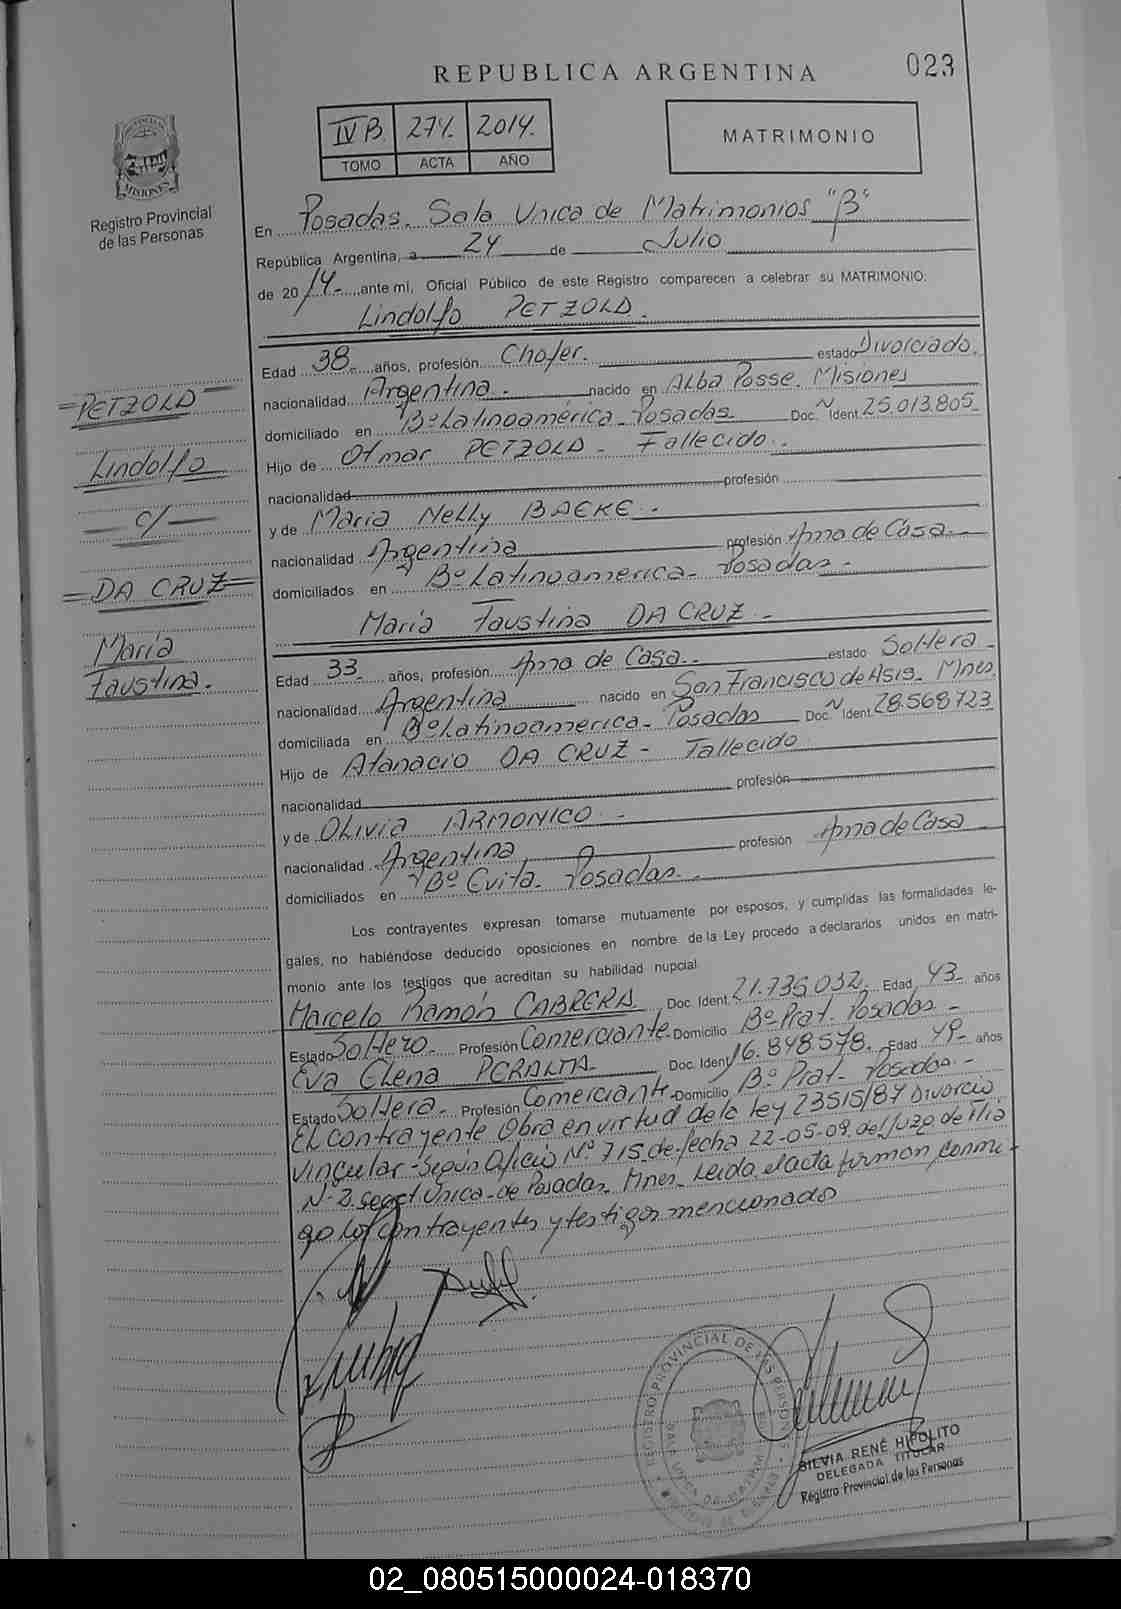 REPUBLICA ARGENTINA
023
IV B. 274. 2014.
TOMO ACTA AÑO
MATRIMONIO
PROVINCIA DE
MISIONES
Registro Provincial
de las Personas
En Posadas. Sala Unica de Matrimonios "B"
República Argentina, a 24 de Julio
de 2014 ante mí, Oficial Público de este Registro comparecen a celebrar su MATRIMONIO:
Lindolfo PETZOLD.
Edad 38 años, profesión Chofer. estado Divorciado.
nacionalidad Argentina. nacido en Alba Posse. Misiones
domiciliado en Bº Latinoamérica - Posadas Doc. Ident. 25.013.805
Hijo de Otmar PETZOLD - Fallecido.
nacionalidad profesión
y de Maria Nelly BAEKE.
nacionalidad Argentina profesión Ama de Casa.
domiciliados en Bº Latinoamerica - Posadas.
María Faustina DA CRUZ.
Edad 33 años, profesión Ama de Casa. estado Soltera
nacionalidad Argentina nacido en San Francisco de Asis - Mnes
domiciliada en Bº Latinoamerica - Posadas Doc. Ident. 28.568.723
Hijo de Atanacio DA CRUZ - Fallecido
nacionalidad profesión
y de Olivia ARMONICO.
nacionalidad Argentina profesión Ama de Casa
domiciliados en Bº Evita - Posadas.
Los contrayentes expresan tomarse mutuamente por esposos, y cumplidas las formalidades le-
gales, no habiéndose deducido oposiciones en nombre de la Ley procedo a declararlos unidos en matri-
monio ante los testigos que acreditan su habilidad nupcial
Marcelo Ramón CABRERA Doc. Ident. 21.735.032. Edad 43 años
Estado Soltero. Profesión Comerciante Domicilio Bº Prat. Posadas
Eva Elena PERALTA Doc. Ident. 16.848.578. Edad 49 años
Estado Soltera. Profesión Comerciante Domicilio Bº Prat - Posadas.
El contrayente Obra en virtud de la ley 23515/87 Divorcio
Vincular - según Oficio Nº 715 de fecha 22-05-09. del Juzg de Flia
N-2. Secret Unica - de Posadas Mnes. Leida el acta firman conmi-
go los contrayentes y testigos mencionado
=PETZOLD=
Lindolfo
- c/ -
=DA CRUZ=
María
Faustina.
REGISTRO PROVINCIAL DE LAS PERSONAS
SILVIA RENÉ HIPOLITO
DELEGADA TITULAR
Registro Provincial de las Personas
02_080515000024-018370